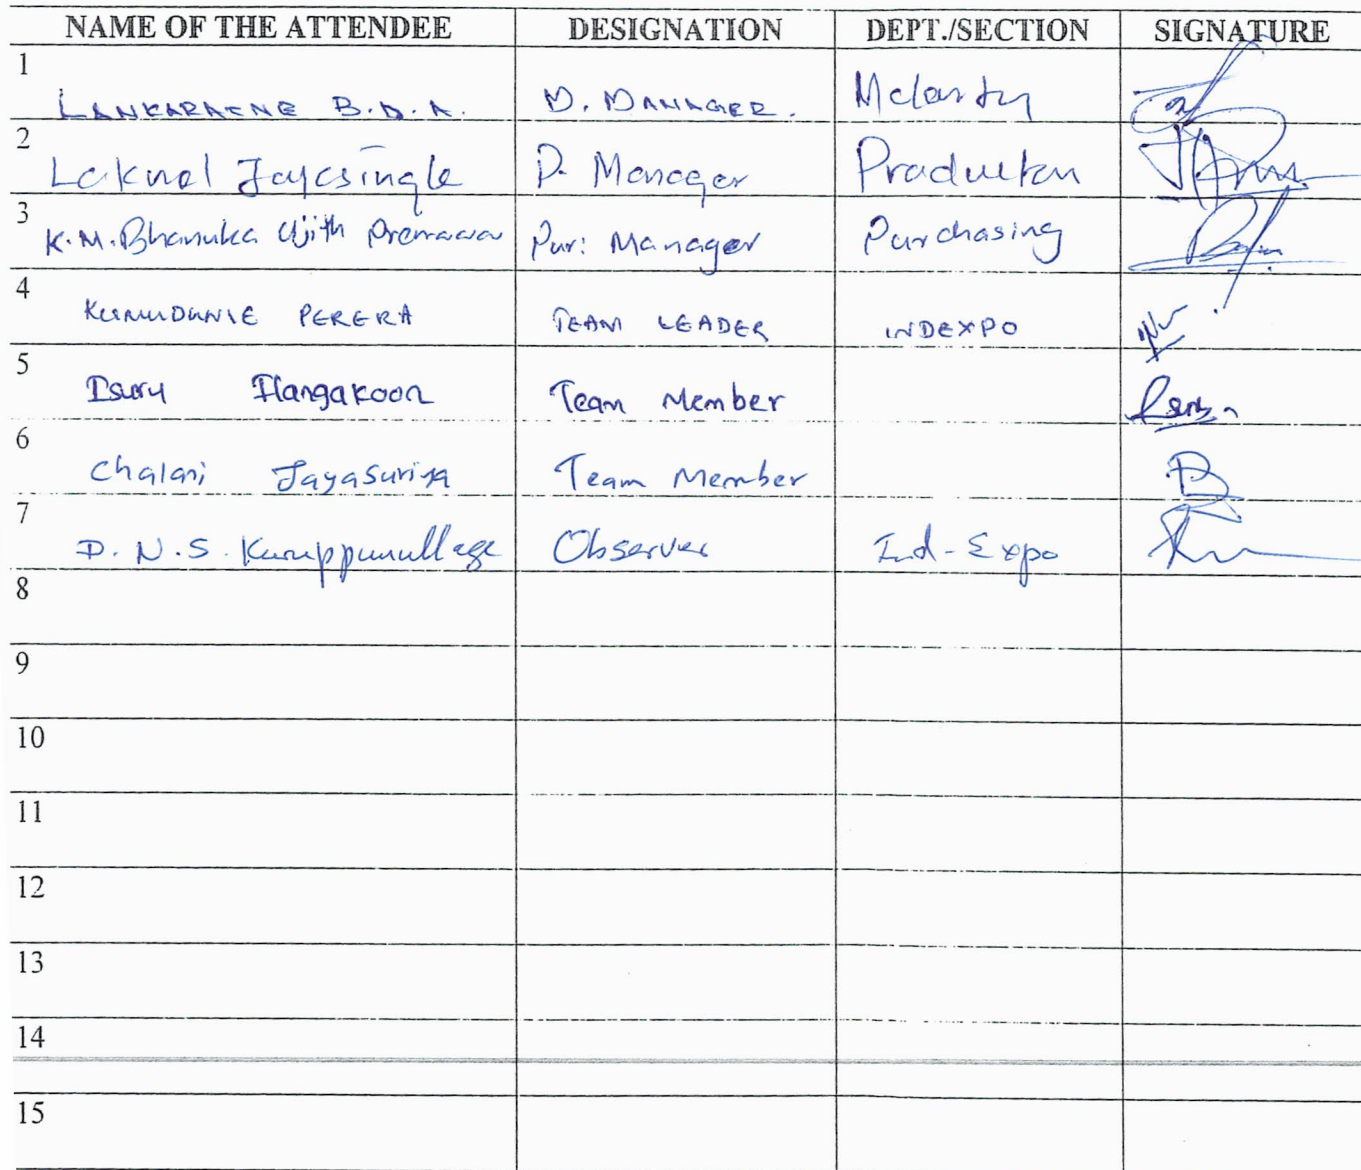 NAME OF THE ATTENDEE DESIGNATION DEPT./SECTION SIGNATURE
1 LANKARAENE B.D.A. M. MANAGER.
2 Laknal Jayasingle P. Manager Production
3 K.M. Bhanuka Ujith Pur: Manager Purchasing
4 KUMUDUNIE PERERA TEAM LEADER INDEXPO
5 Isuru Ilangakoon Team Member
6 Chalani Jayasuriya Team Member
7 D. N. S. Kuruppumullage Observer Ind-Expo
8
9
10
11
12
13
14
15